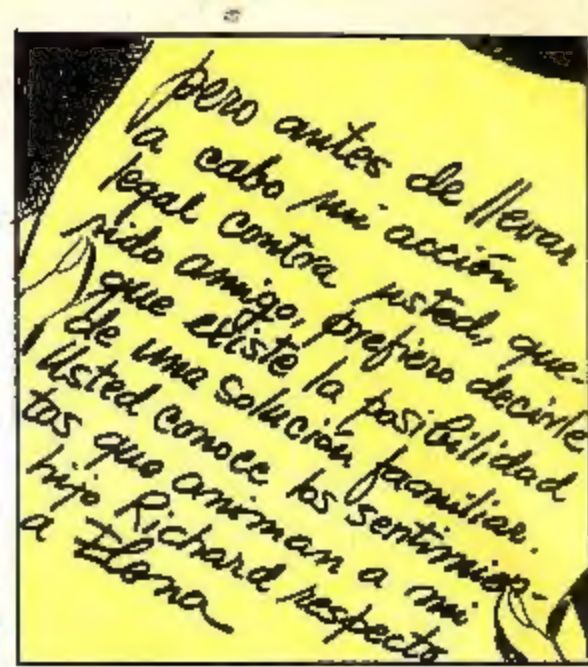 pero antes de llevar
a cabo mi acción
legal contra usted, que-
rido amigo, prefiero decirle
que existe la posibilidad
de una solución familiar.
Usted conoce los sentimien-
tos que animan a mi
hijo Richard respecto
a Ilona